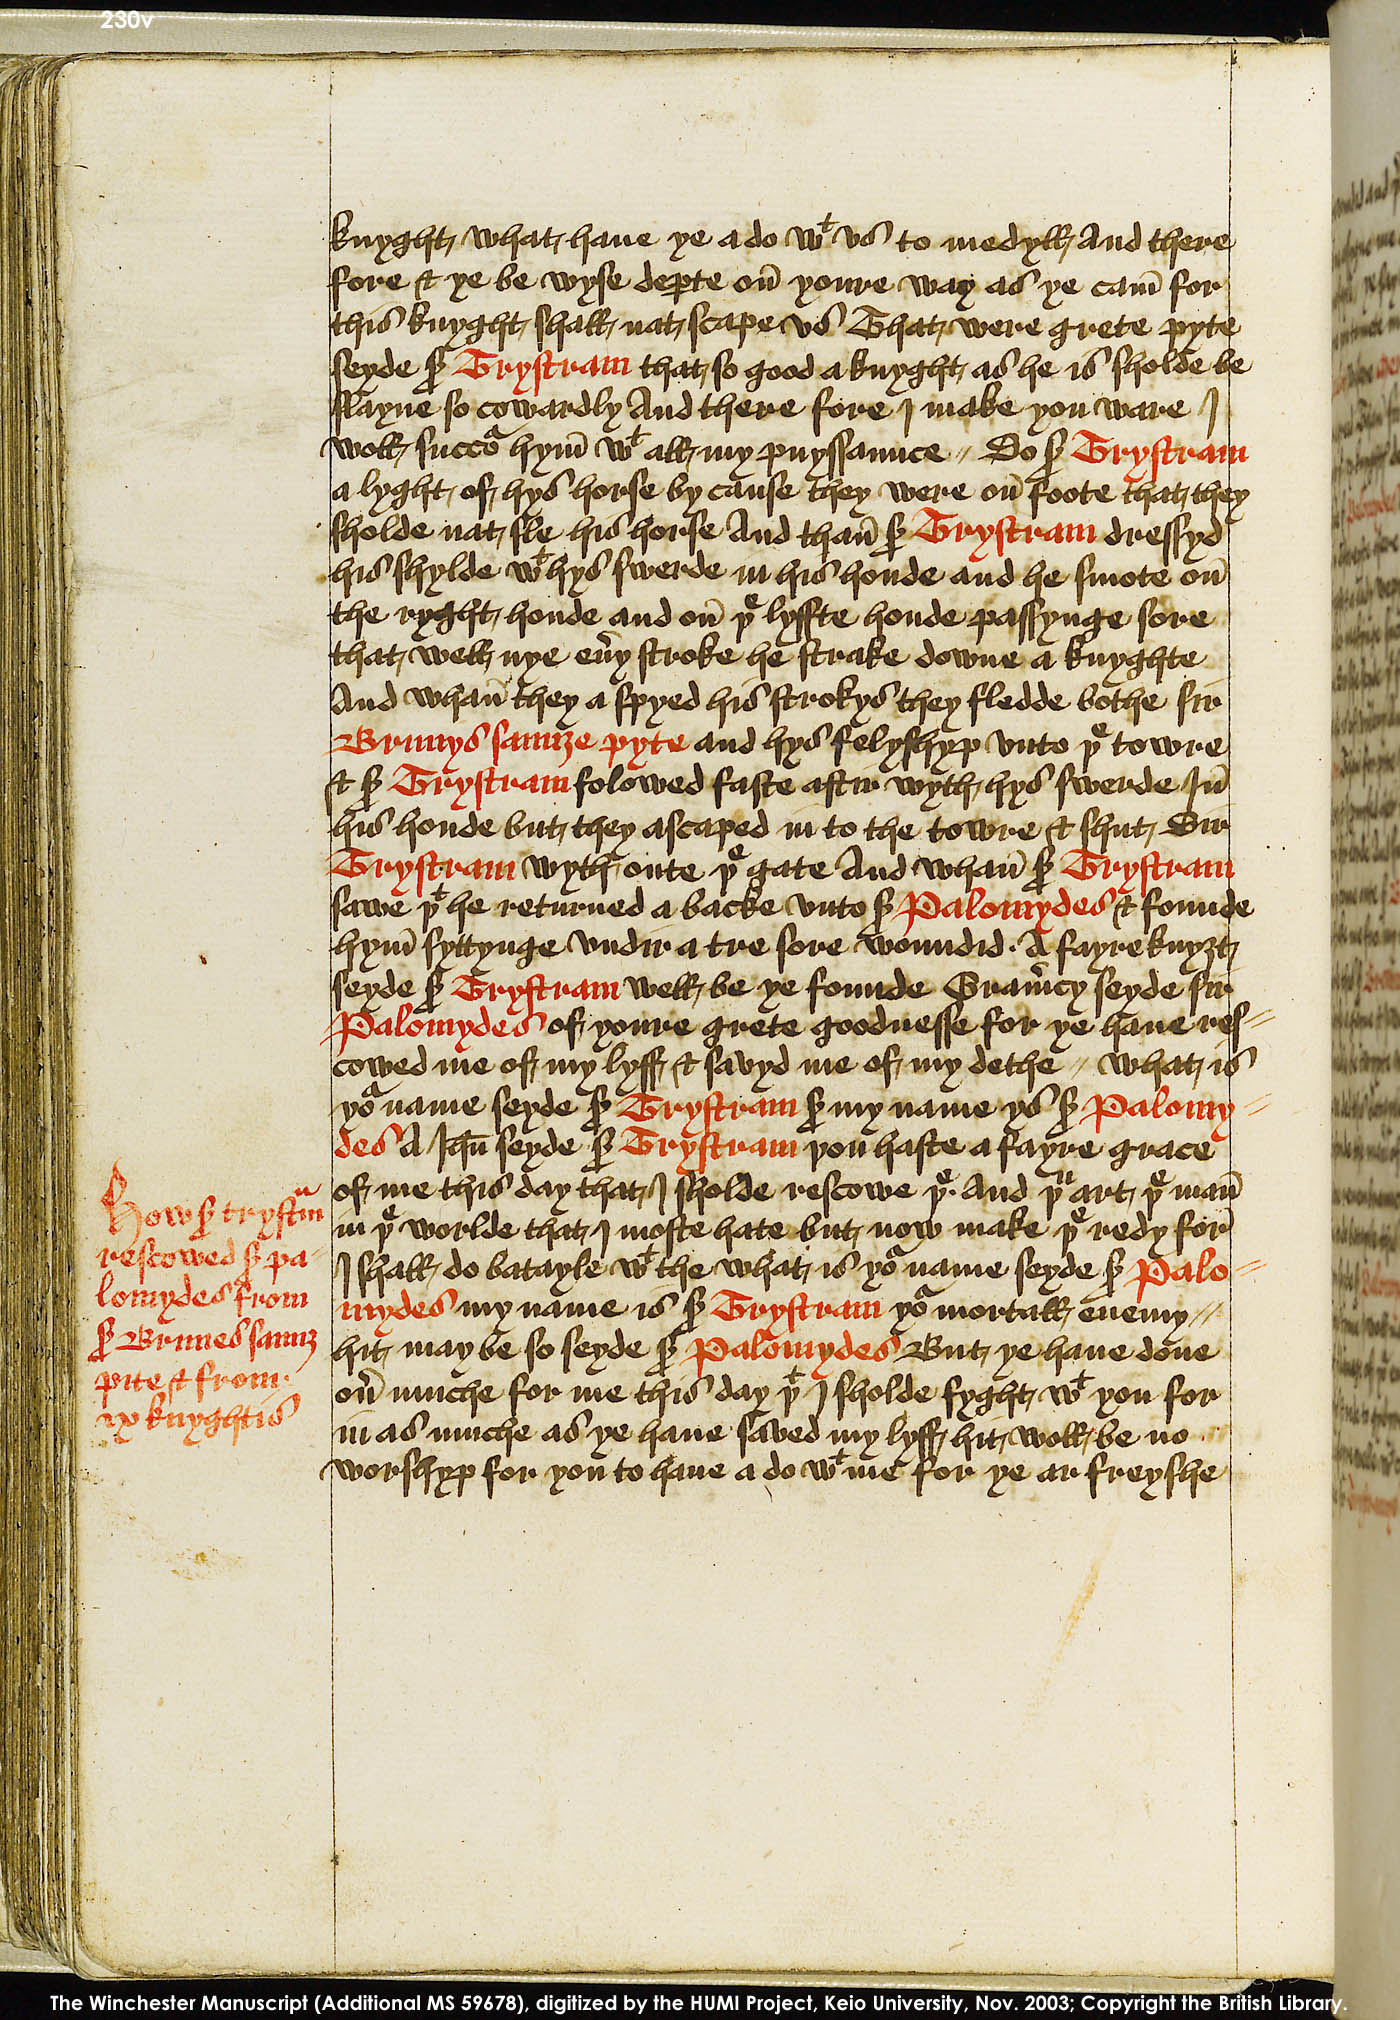 230v
knyght what haue ye a do wt vs to medyll And there
fore & ye be wyse depte on̄ youre way as ye cam̄ for
this knyght shall nat scape vs That were grete pyte
seyde sr Trystram that so good a knyght as he is sholde be
slayne so cowardly And there fore I make you ware I
woll succor hym̄ wt all my puyssaunce // So sr Trystram
a lyght of hys horse by cause they were on̄ foote that they
sholde nat sle his horse And than̄ sr Trystram dressyd
his shylde wt hys swerde in his honde and he smote on̄
the ryght honde and on̄ þe lyffte honde passynge sore
that well nye eu'y stroke he strake downe a knyghte
And whan̄ they a spyed his strokys they fledde bothe sir
Brunys saunze pyte and hys felyshyp vnto þe towre
& sr Trystram folowed faste aftir wyth hys swerde In̄
his honde but they ascaped in to the towre & shut Sir
Trystram wyth oute þe gate And whan̄ sr Trystram
sawe þt he returned a backe vnto sr Palomydes & founde
hym̄ syttynge vndir a tre sore woundid . A fayre knyȝt
seyde sr Trystram well be ye founde Gram'cy seyde sir
Palomydes of youre grete goodnesse for ye haue res=
cowed me of my lyff & savyd me of my dethe // what is
yor name seyde sr Trystram sr my name ys sr Palomy=
des A Ihū seyde sr Trystram þou haste a fayre grace
of me this day that I sholde rescowe þe . And þu art þe man̄
in þe worlde that I moste hate but now make þe redy for
I shall do batayle wt the what is yor name seyde sr Palo=
mydes my name is sr Trystram yor mortall enemy //
hit may be so seyde sr Palomydes But ye haue done
ou' muche for me this day þt I sholde fyght wt you for
in as muche as ye haue saved my lyff hit woll be no
worshyp for you to haue a do wt me for ye ar freyshe
How sr trystrm
rescowed sr pa=
lomydes from
sr Brunes saunz
pite & from
ix knyghtis
The Winchester Manuscript (Additional MS 59678), digitized by the HUMI Project, Keio University, Nov. 2003; Copyright the British Library.